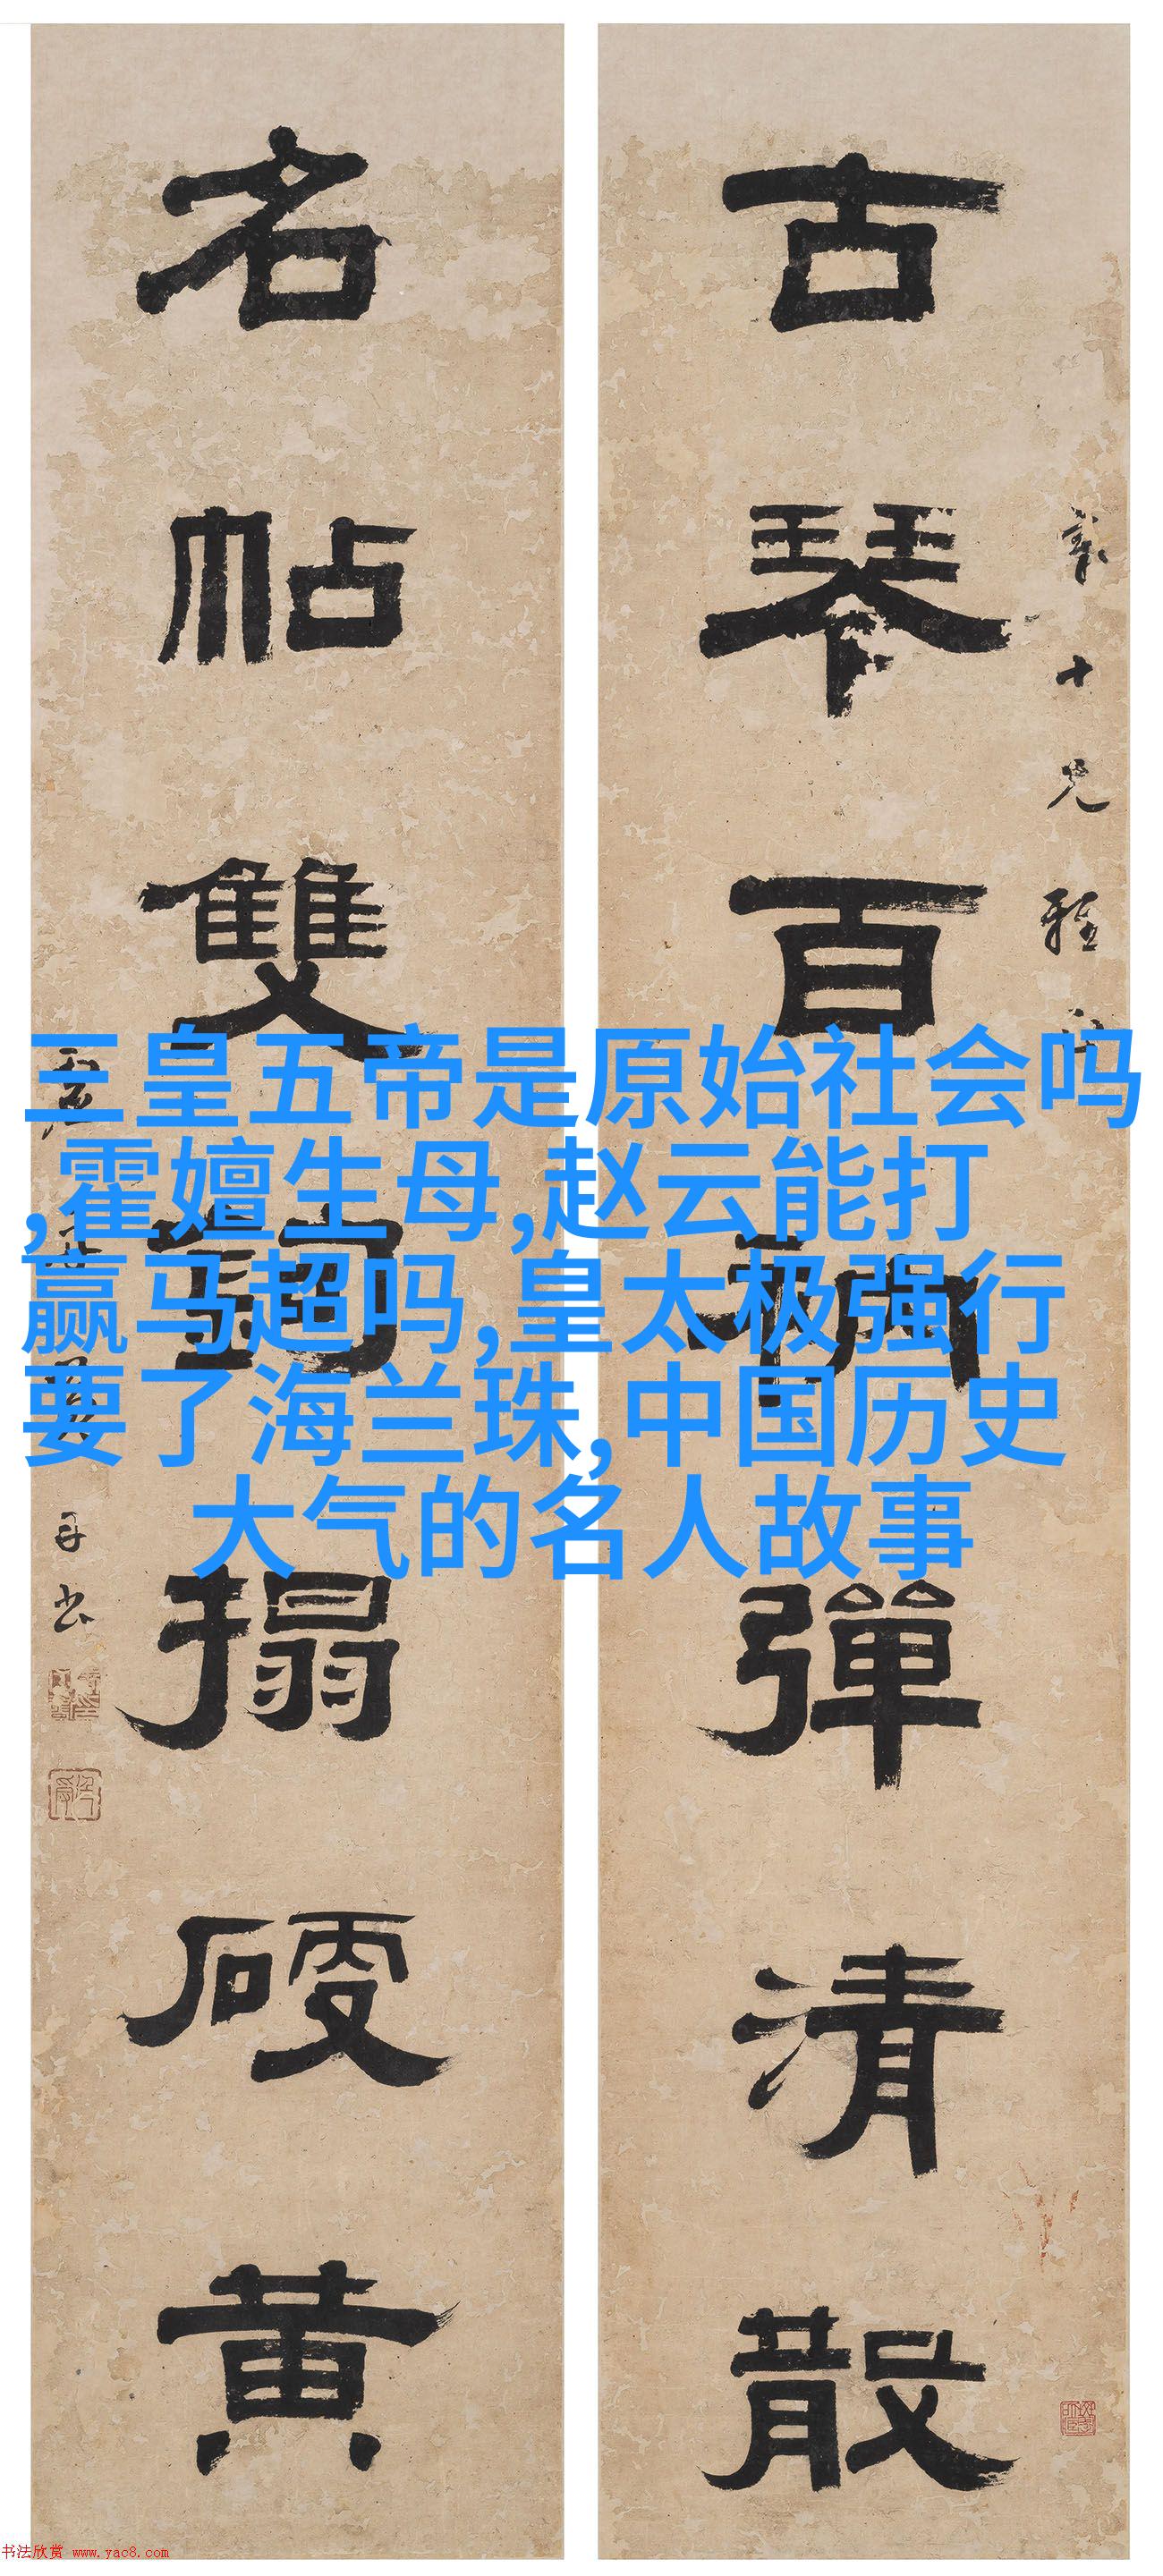 古琴百衲彈清散
名帖雙鉤搨硬黄
十兄雅
三皇五帝是原始社会吗
,霍嬗生母,赵云能打
赢马超吗,皇太极强行
要了海兰珠,中国历史
大气的名人故事
书法欣赏 www.yac8.com